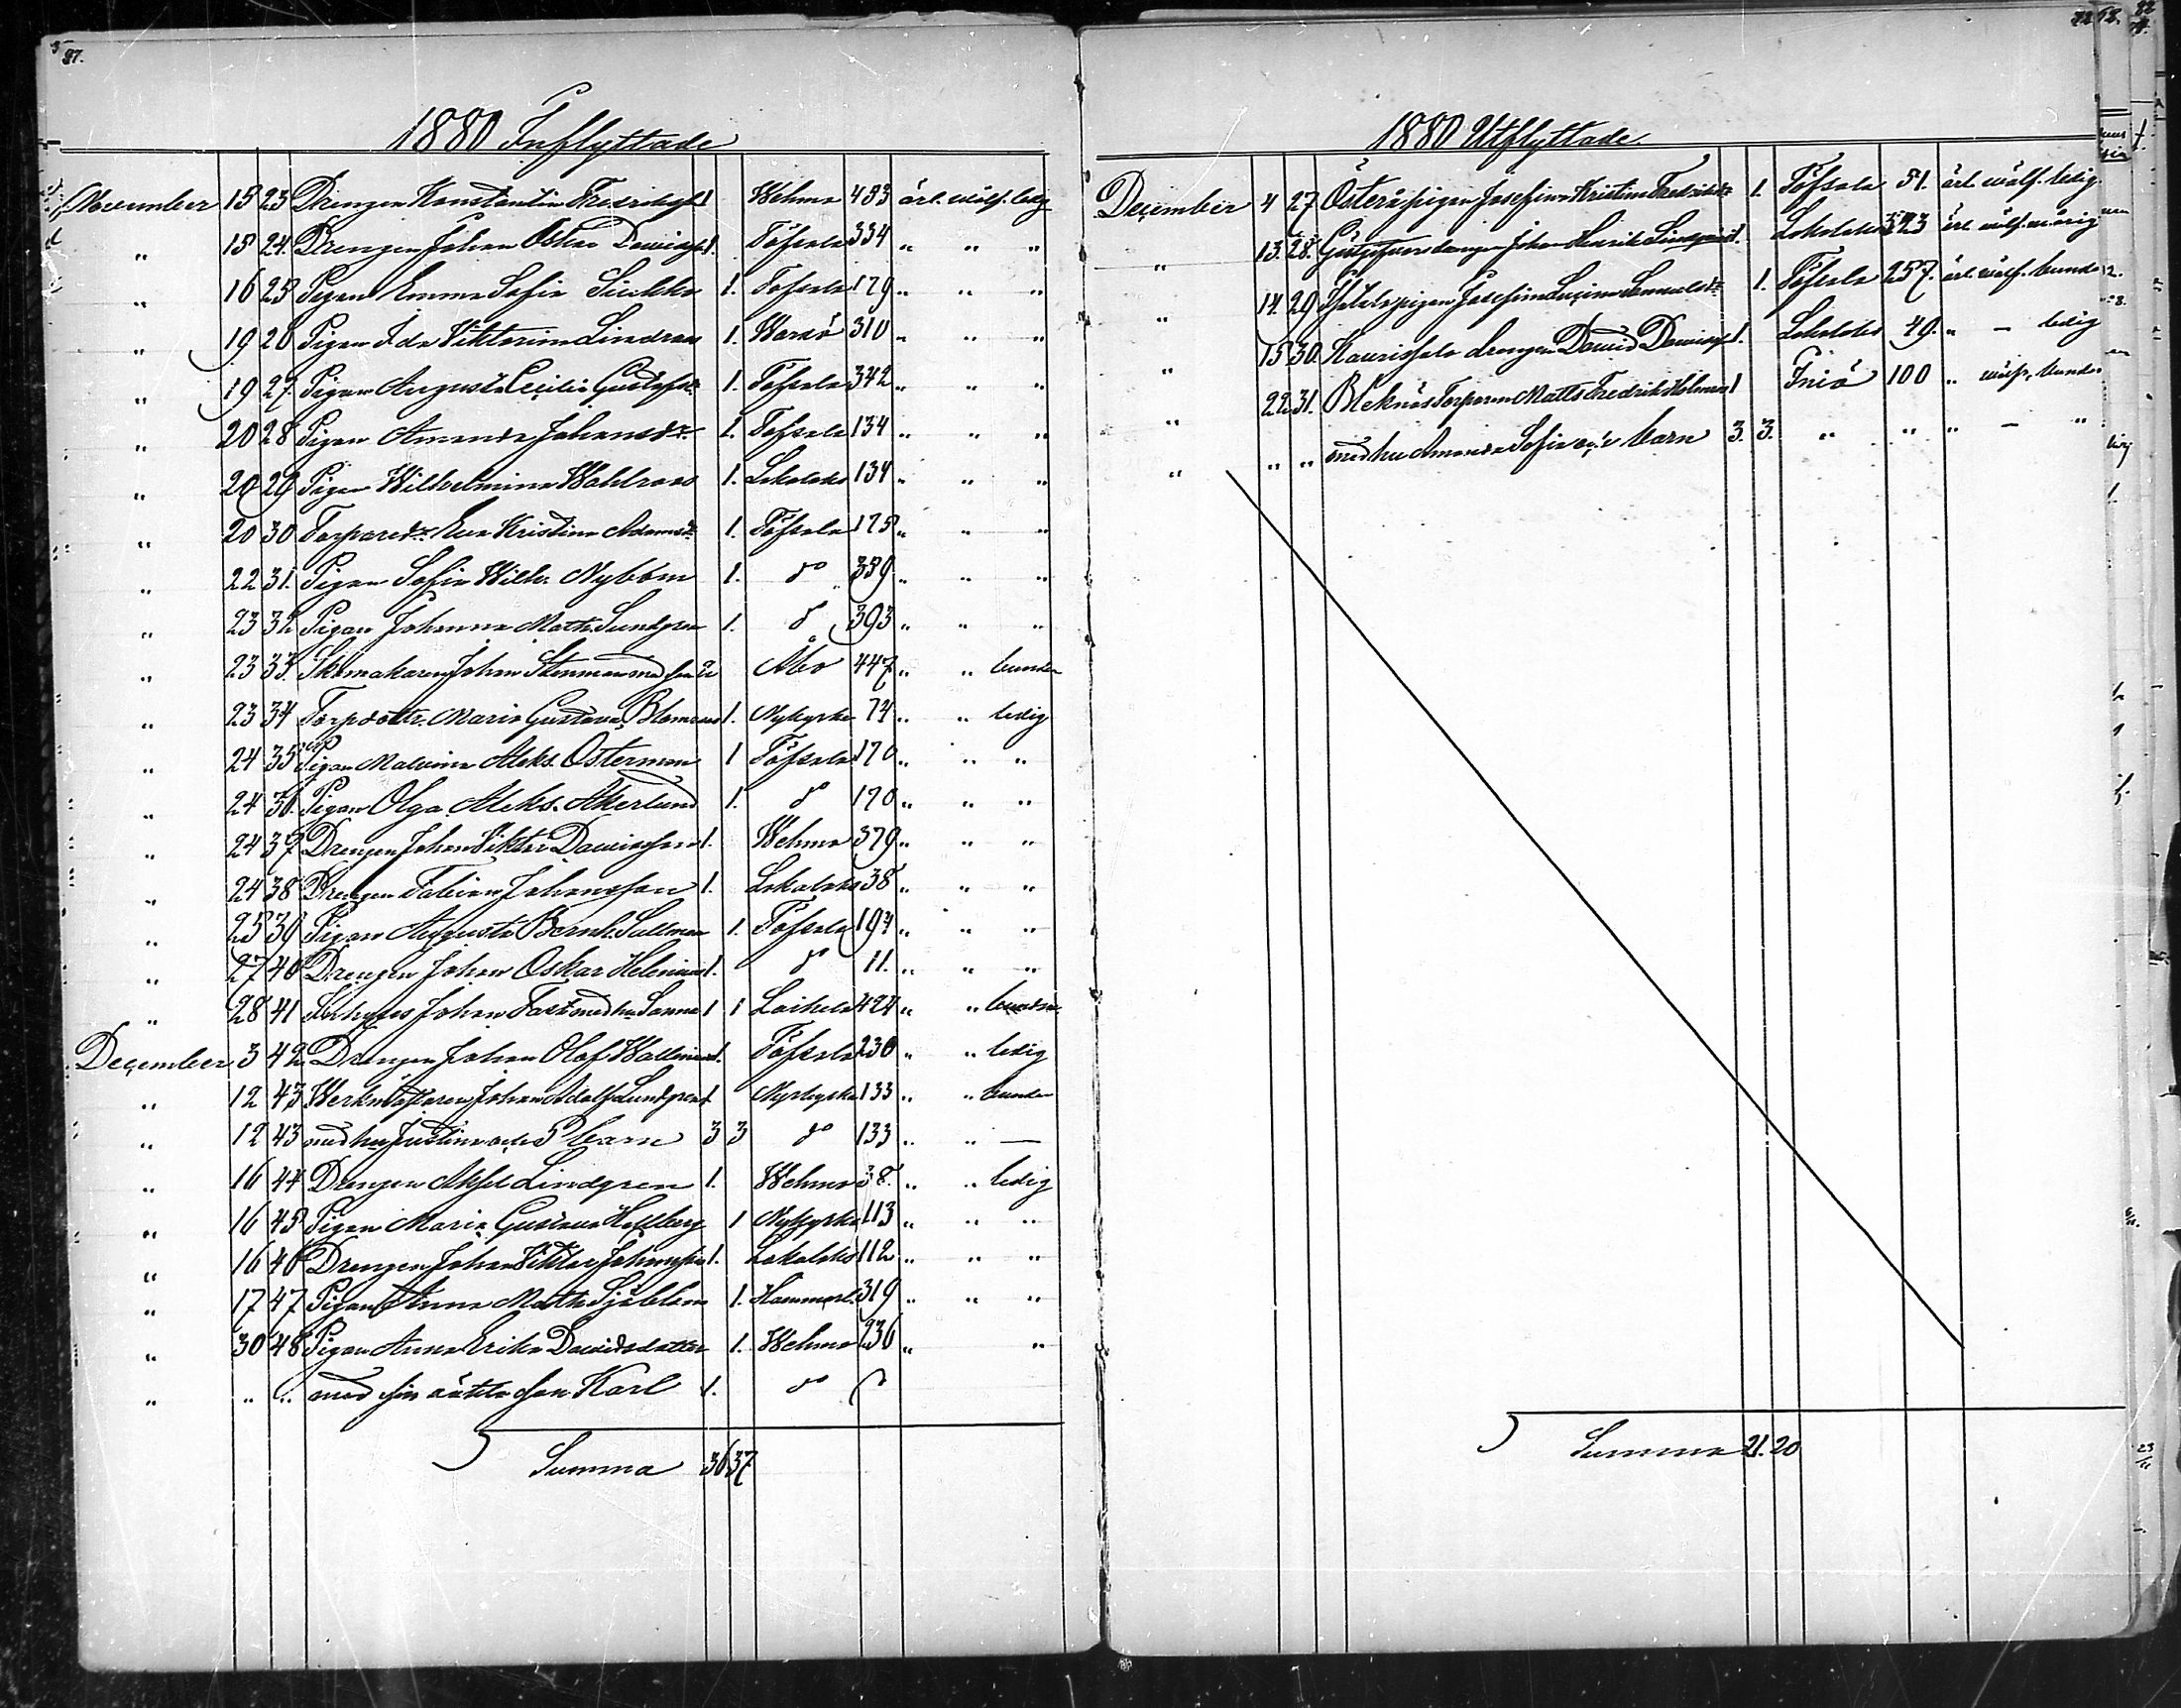 1880 Inflyttade
November 15 23 Drengen Konstantin Fredrikss. 1 Wehmo 433 ärl. wälf. ledig
" 15 24. Drengen Johan Oskar Davidss. 1. Töfsala 334 " " "
" 16 25 Pigan Emma Sofia 1. Töfsala 179 " " "
" 19 26 Pigan Ida Viktorina Lindroos 1. Warsö 310 " "
" 19 27. Pigan Augusta Cecilia Gustafsdr 1. Töfsala 342 " " "
" 20 28 Pigan Amanda Johansdr. 1. Töfsala 134 " " "
" 20 29 Pigan Wilhelmina Wahlroos 1. Lokalaks 134 " "
" 20 30 Torparedr. Eva Kristina Adamsdr 1. Töfsala 175 " " "
" 22 31. Pigan Sofia Wilh. Nybom 1. do 359 " " "
" 23 32 Pigan Johanna Math. Sundgren 1. do 393 " " "
" 23 33. Skomakaren Johan Stenman med 2 Åbo 447 " " bunden
" 23 34 Torpdottr. Maria Gustava Blomroos 1. Nykyrka 74 " " ledig
" 24 35 Pigan Malvina Aleks. Österman 1 Töfsala 170 " " "
" 24 36. Pigan Olga Aleks. Åkerlund 1. do 170 " " "
" 24 37 Drengen Johan Viktor Davidsson 1. Wehmo 379 " " "
" 24 38 Drengen Fabian Johansson 1. Lokalaks 38 " " "
" 25 39 Pigan Augusta Bernh. Sallman 1. Töfsala 194 " " "
" 27 40 Drengen Johan Oskar Helenius 1. do 11. " " "
" 28 41 Inhyses Johan Fast med hu Sanna 1 1 Laihela 424 " " bundne
December 3 42 Drengen Johan Olof Wallenius 1. Töfsala 230 " " ledig
" 12 43 Werkmästaren Johan Adolf Lundgren 1 Nykyrka 133 " " bunden
" 12 43 med hu Justina och 5 barn 3 3 do 133 " " —
" 16 44 Drengen Aksel Lindgren 1. Wehmo 38. " " ledig
" 16 45 Pigan Maria Gustava Hellberg 1 Nykyrka 113 " " "
" 16 46 Drengen Johan Viktor Johansson 1. Lokalaks 112 " " "
" 17 47 Pigan Anna Math. Sjöblom 1. Hammarl. 319 " " "
" 30 48 Pigan Anna Erika Davidsdotter 1. Wehmo 236 " "
" " " med sin oäkta son Karl 1. do
Summa 36 37
1880 Utflyttade.
December 4 27 Österå pigan Josefina Kristina Fredriksdr 1. Töfsala 51. ärl. wälf. ledig.
" 13. 28. drengen Johan Henrik Lindqvist 1. Lokalaks 323 ärl. wälf.
" 14. 29 pigan Josefina Lovisa Samuelsdr 1. Töfsala 257. ärl. wälf. bunde
" 15 30. Kaurissalo drengen David Davidss. 1. Lokalaks 49. " — ledig
" 22 31. Bleknäs Torparen Matts Fredrik Holmroos 1 Iniö 100 " wälf. bunden
" " " med hu Amanda Sofia och barn 3. 3. " " " — "
Summa 21. 20